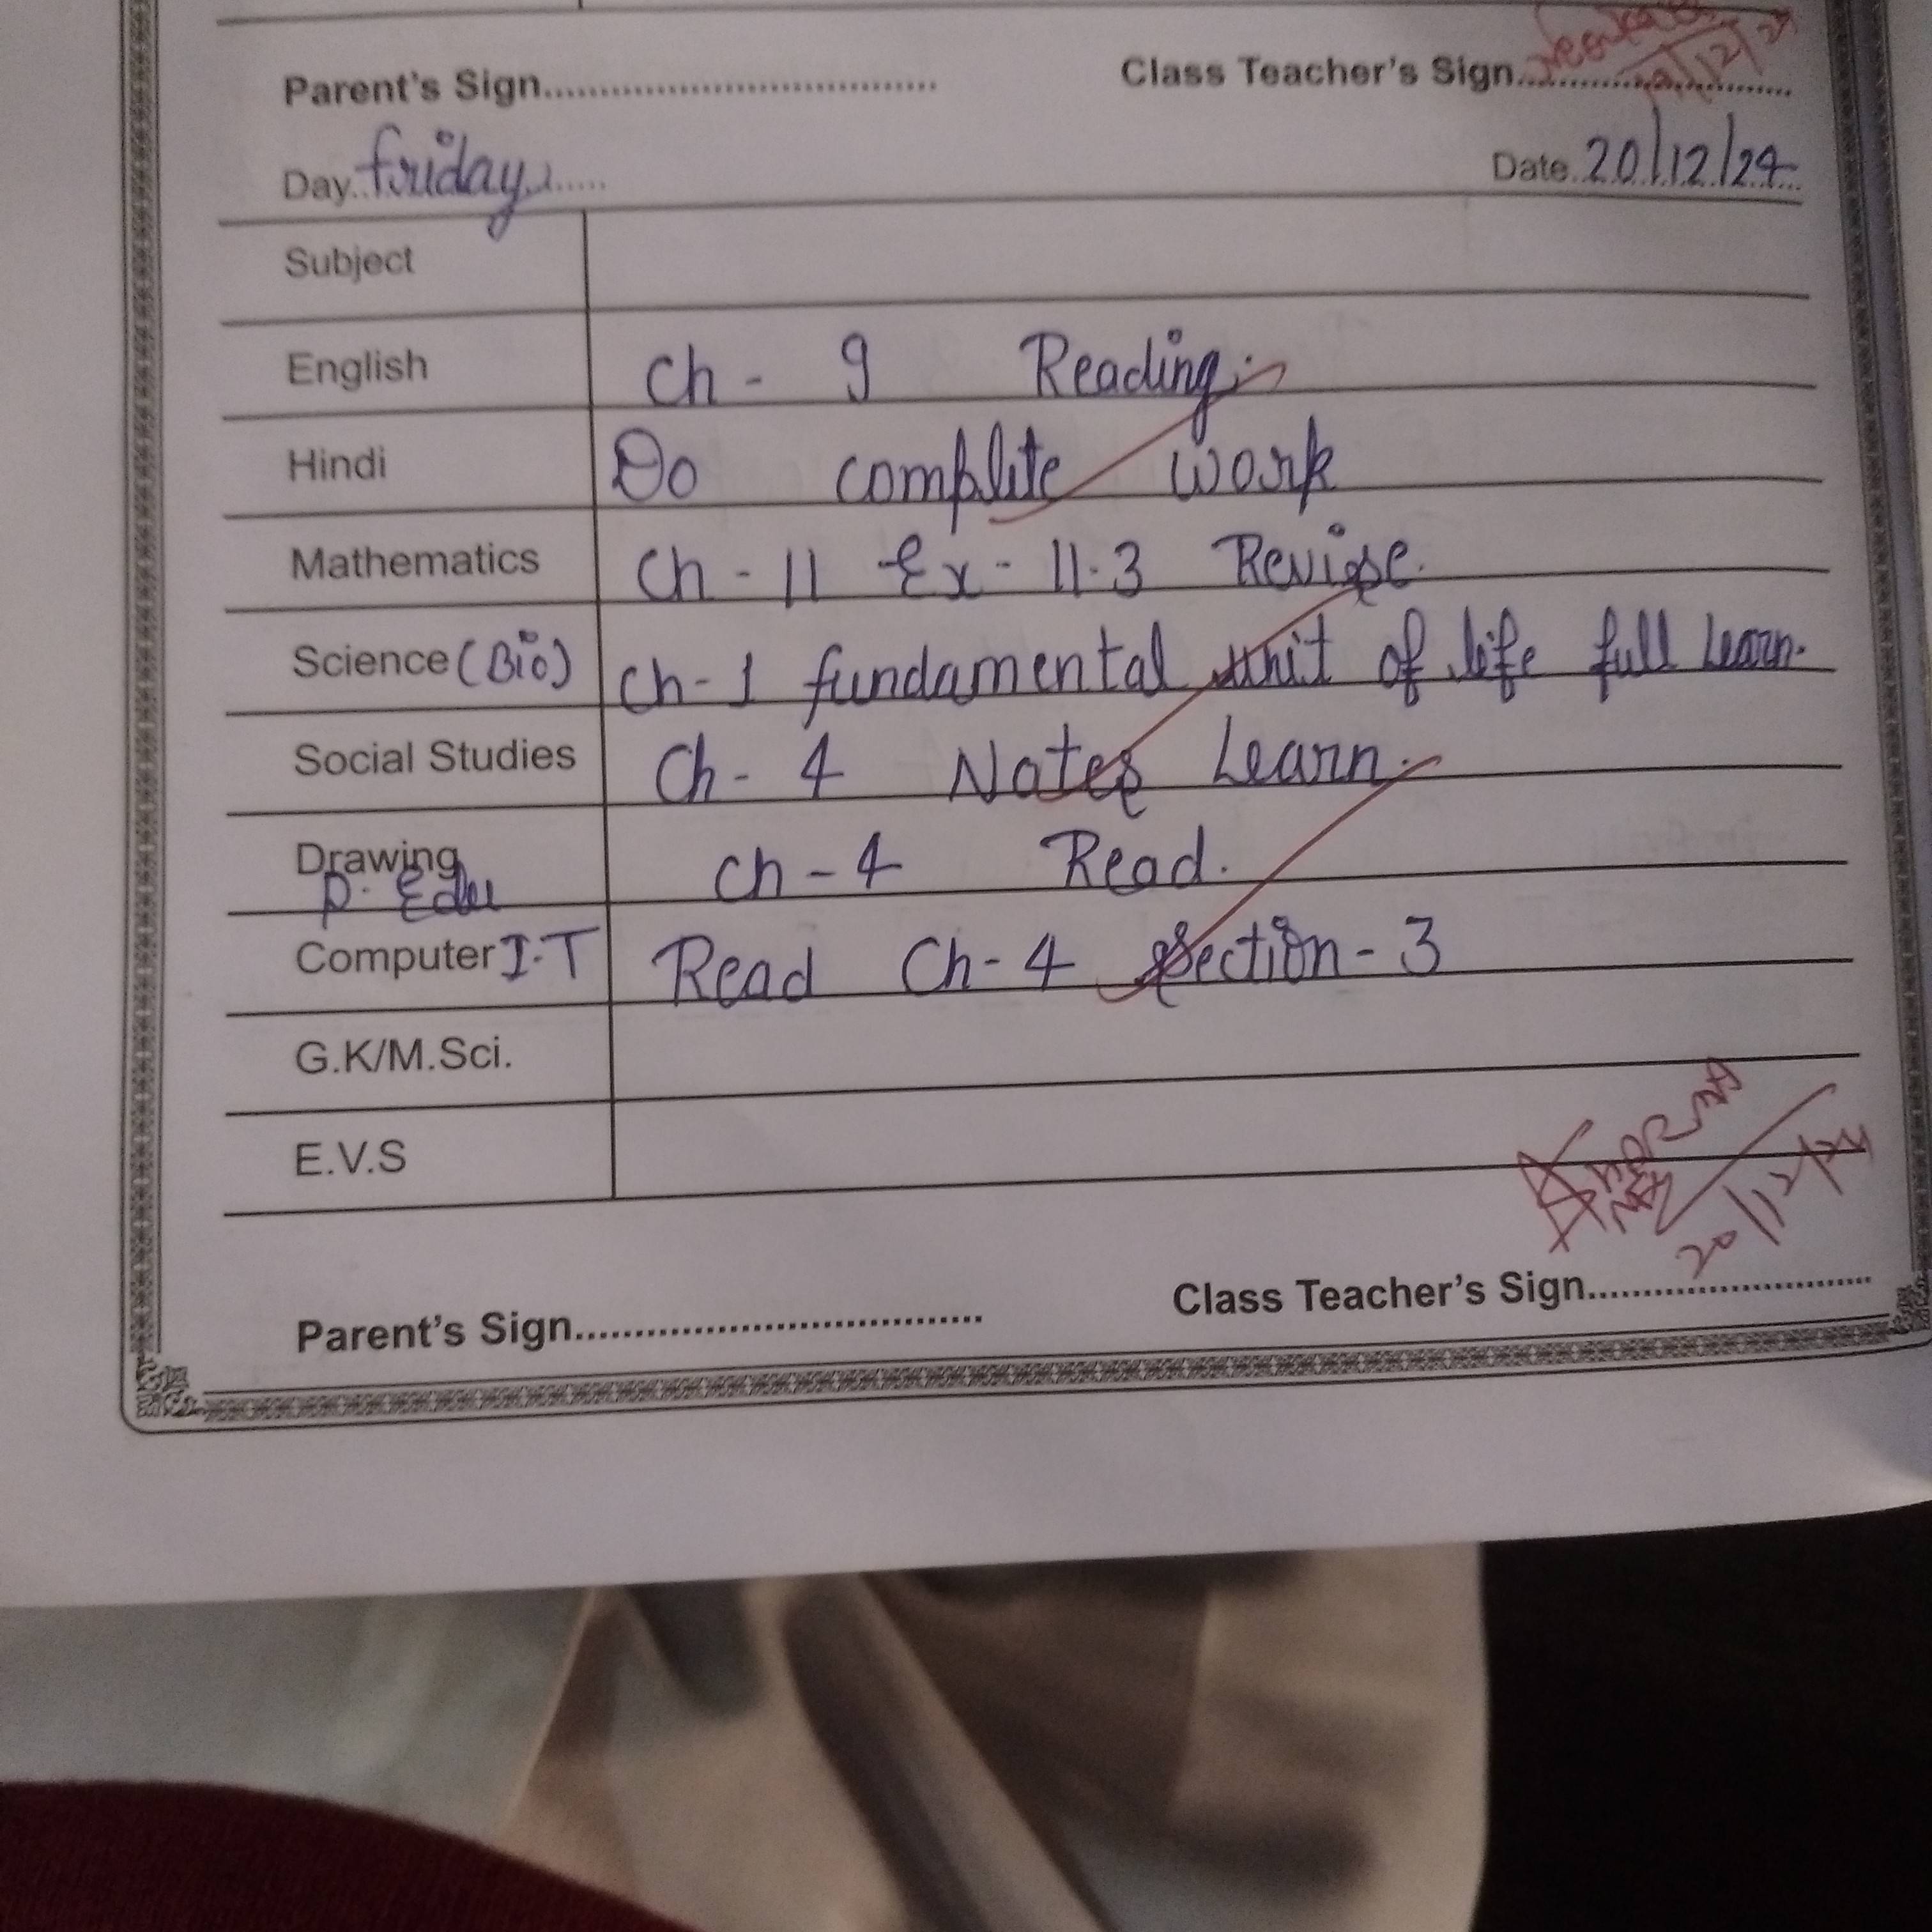 Parent's Sign.................................... Class Teacher's Sign..............................
Day..friday...... Date..20/12/24...
Subject
English Ch - 9 Reading.
Hindi Do complite work
Mathematics Ch - 11 Ex - 11.3 Revise.
Science (Bio) Ch - 1 fundamental unit of life full Learn.
Social Studies Ch - 4 Notes Learn.
Drawing Ch - 4 Read.
P. Edu
Computer I.T Read Ch - 4 Section - 3
G.K/M.Sci.
E.V.S
20/12/24
Parent's Sign.................................... Class Teacher's Sign..............................